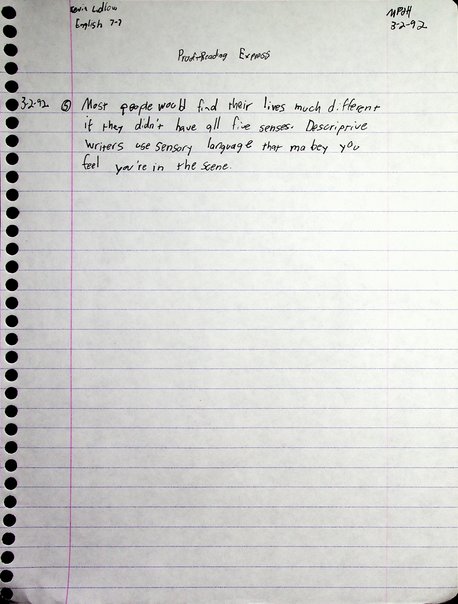 Kevin Ludlow
English 7-7
3-2-92
Proofreading Express
3-2-92 ⑤ Most people would find their lives much different
if they didn't have all five senses. Descriptive
writers use sensory language that mabey you
feel you're in the scene.